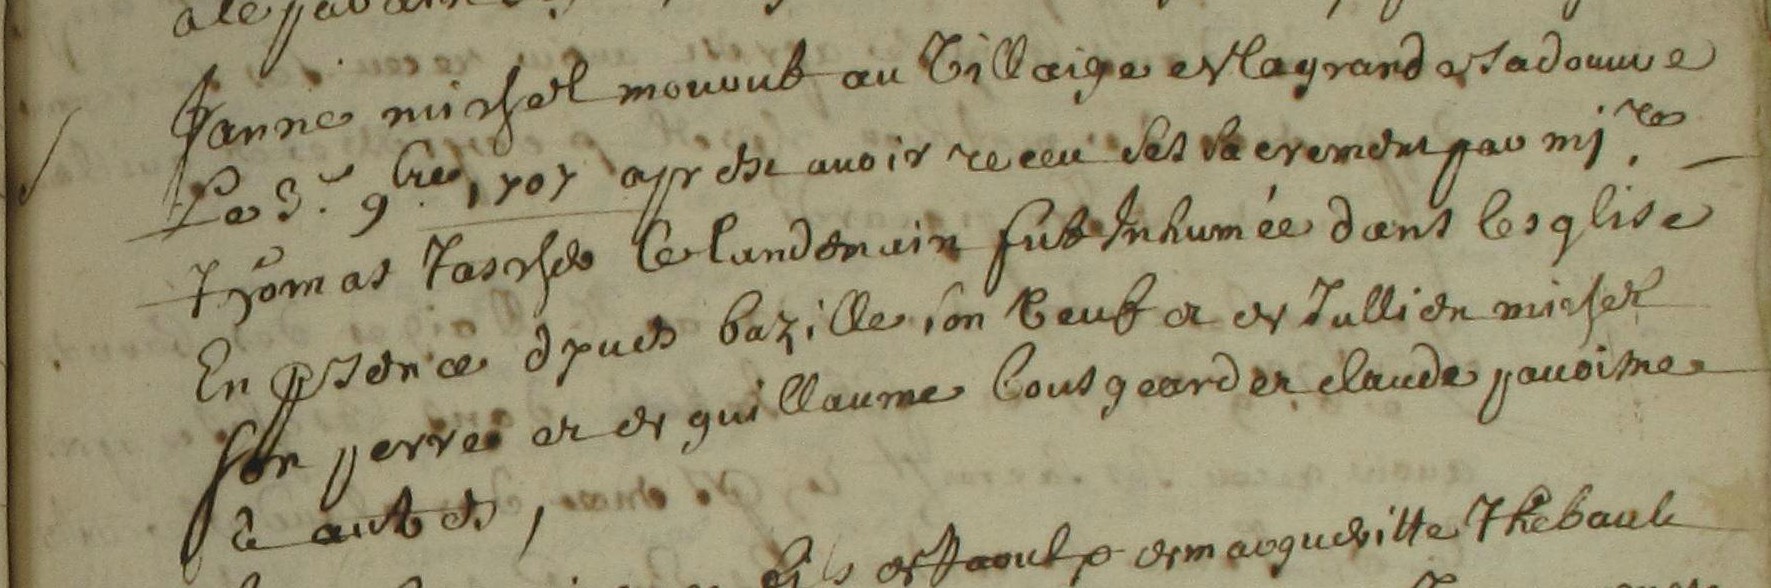 Janne michel mourut au Village de la grand estadouuve
Le 3.e 9.bre 1707 apres avoir receu ses sacrements par mi.re
Thomas Tasche le landemain fut Inhumée dans lesglise
En presence dyves bazille son beuf et de Jullien michel
son perre et de guillaume bousgeard et claude pavoisne
& autres,
fils de Raoul et de margueritte Thebault